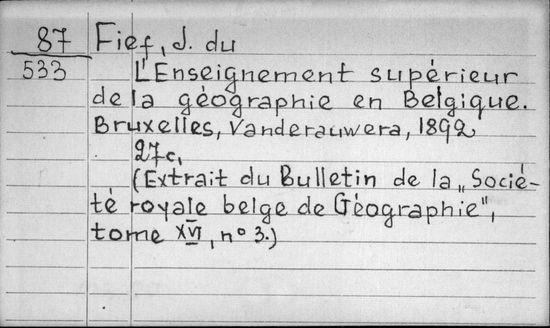 87 Fief, J. du
533 L'Enseignement supérieur
de la géographie en Belgique.
Bruxelles, Vanderauwera, 1892
27c.
(Extrait du Bulletin de la „Socié-
té royale belge de Géographie",
tome XVI, n° 3.)